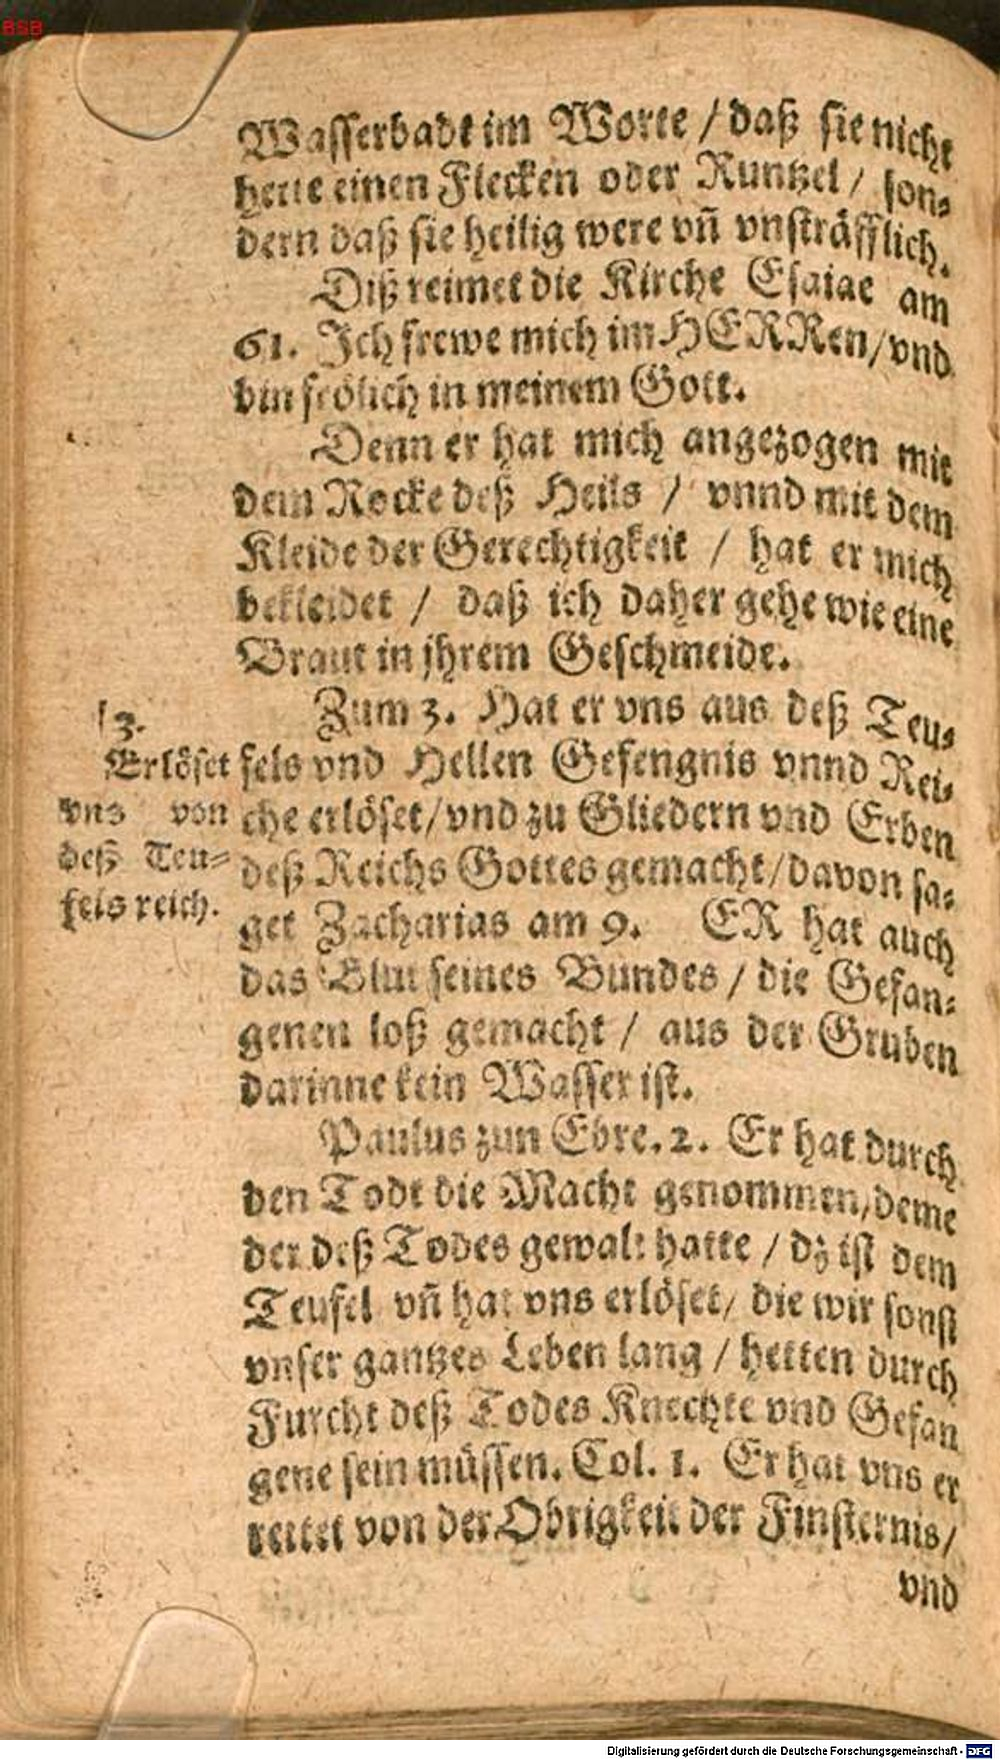 BSB
Wasserbadt im Worte / daß sie nicht
hette einen Flecken oder Runtzel / son⸗
dern daß sie heilig were vñ vnsträfflich.
Diß reimet die Kirche Esaiae am
61. Jch frewe mich im HERRen / vnd
bin frölich in meinem Gott.
Denn er hat mich angezogen mit
dem Rocke deß Heils / vnnd mit dem
Kleide der Gerechtigkeit / hat er mich
bekleidet / daß ich daher gehe wie eine
Braut in jhrem Geschmeide.
Zum 3. Hat er vns aus deß Teu⸗
fels vnd Hellen Gefengnis vnnd Rei⸗
che erlöset / vnd zu Gliedern vnd Erben
deß Reichs Gottes gemacht / davon sa⸗
get Zacharias am 9. ER hat auch
das Blut seines Bundes / die Gefan⸗
genen loß gemacht / aus der Gruben
darinne kein Wasser ist.
Paulus zun Ebre. 2. Er hat durch
den Todt die Macht genommen / deme
der deß Todes gewalt hatte / dz ist dem
Teufel vñ hat vns erlöset / die wir sonst
vnser gantzes Leben lang / hetten durch
Furcht deß Todes Knechte vnd Gefan
gene sein müssen. Col. 1. Er hat vns er
rettet von der Obrigkeit der Finsternis /
vnd
3.
Erlöset
vns von
deß Teu⸗
fels reich.
Digitalisierung gefördert durch die Deutsche Forschungsgemeinschaft - DFG